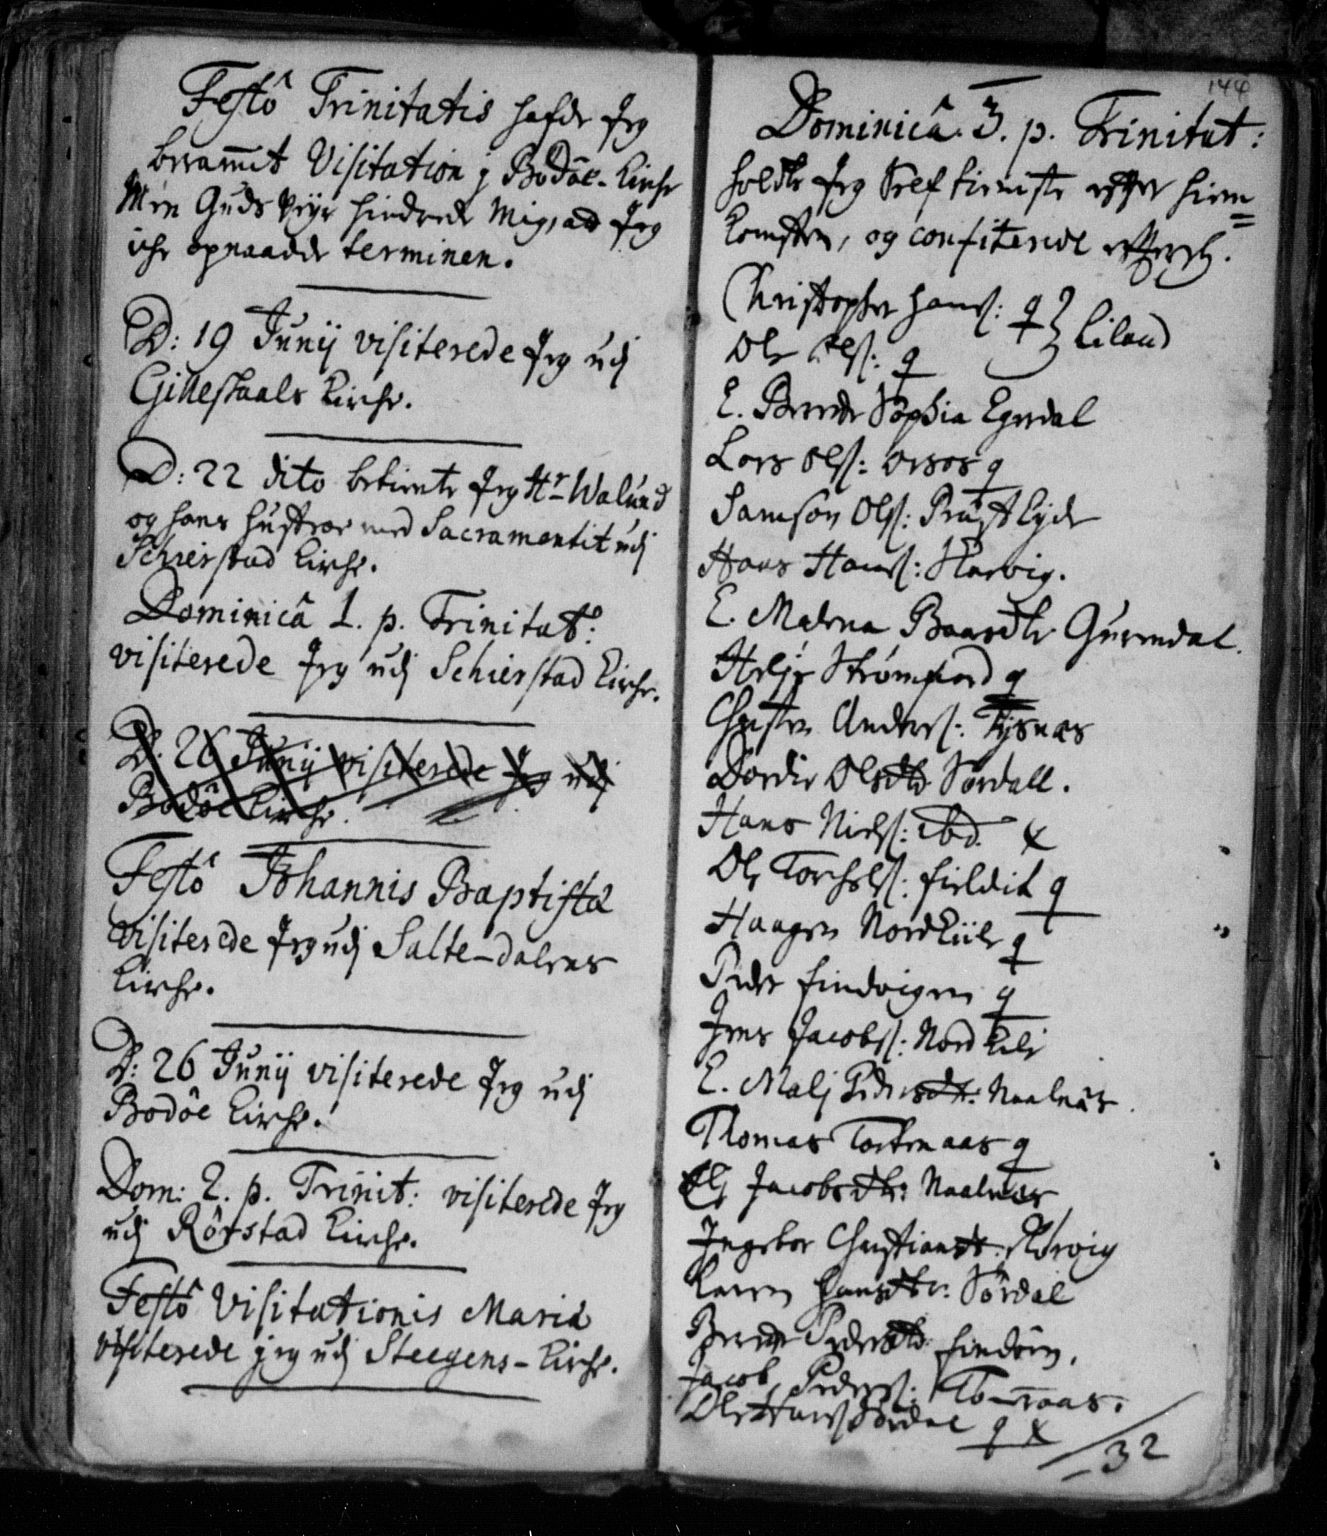 Festô Trinitatis hafde Jeg
berammet Visitation j Bodöe-Kirche
Men Guds Veyr hindrede Mig, at Jeg
iche opnaadde terminen.
D: 19 Junij visiterede Jeg udj
Gilleskaals Kirche.
D: 22 dito betiente Jeg Hr Walund
og hans Hustroe med Sacramentit udj
Schierstad Kirche.
Dominicâ 1. p. Trinitat:
visiterede Jeg udj Schierstad Kirche.
D: 26 Junij visiterede Jeg udj
Bodöe Kirche.
Festô Johannis Baptistæ
visiterede Jeg udj Salte-dalens
Kirche.
D: 26 Junij visiterede Jeg udj
Bodöe Kirche.
Dom: 2. p. Trinit: visiterede Jeg
udj Rörstad Kirche.
Festô Visitationis Mariæ
visiterede jeg udj Steegens-Kirche.
144
Dominicâ. 3. p. Trinitat:
holdte Jeg Self tieniste effter hiem=
komsten, og confiterede
Christopher Hans: q
Ole Ols: q Eiland
E. Berede Sophia Egerdal
Lars Ols: q
Samson Ols: Præst
Hans Hans:
E. Malena Baardtr
Helje Strømfiord q
Christen Anders: Tysnæs
Dordie Olsdtr Sördall.
Hans Niels: ibd. x
Ole fieldit q
Haagen Nordkiil q
Peder findvigen q
Jens Jacobs: Nord
E. Malj Pedersdtr: Naalnæs
Thomas q
Jacobsdtr: Naalnæs
Ingebor Christiansdtr:
Karen Hansdtr: Sördal
Berede Pedersdtr
Jacob Peders:
Ole Hans Sördal q x
32